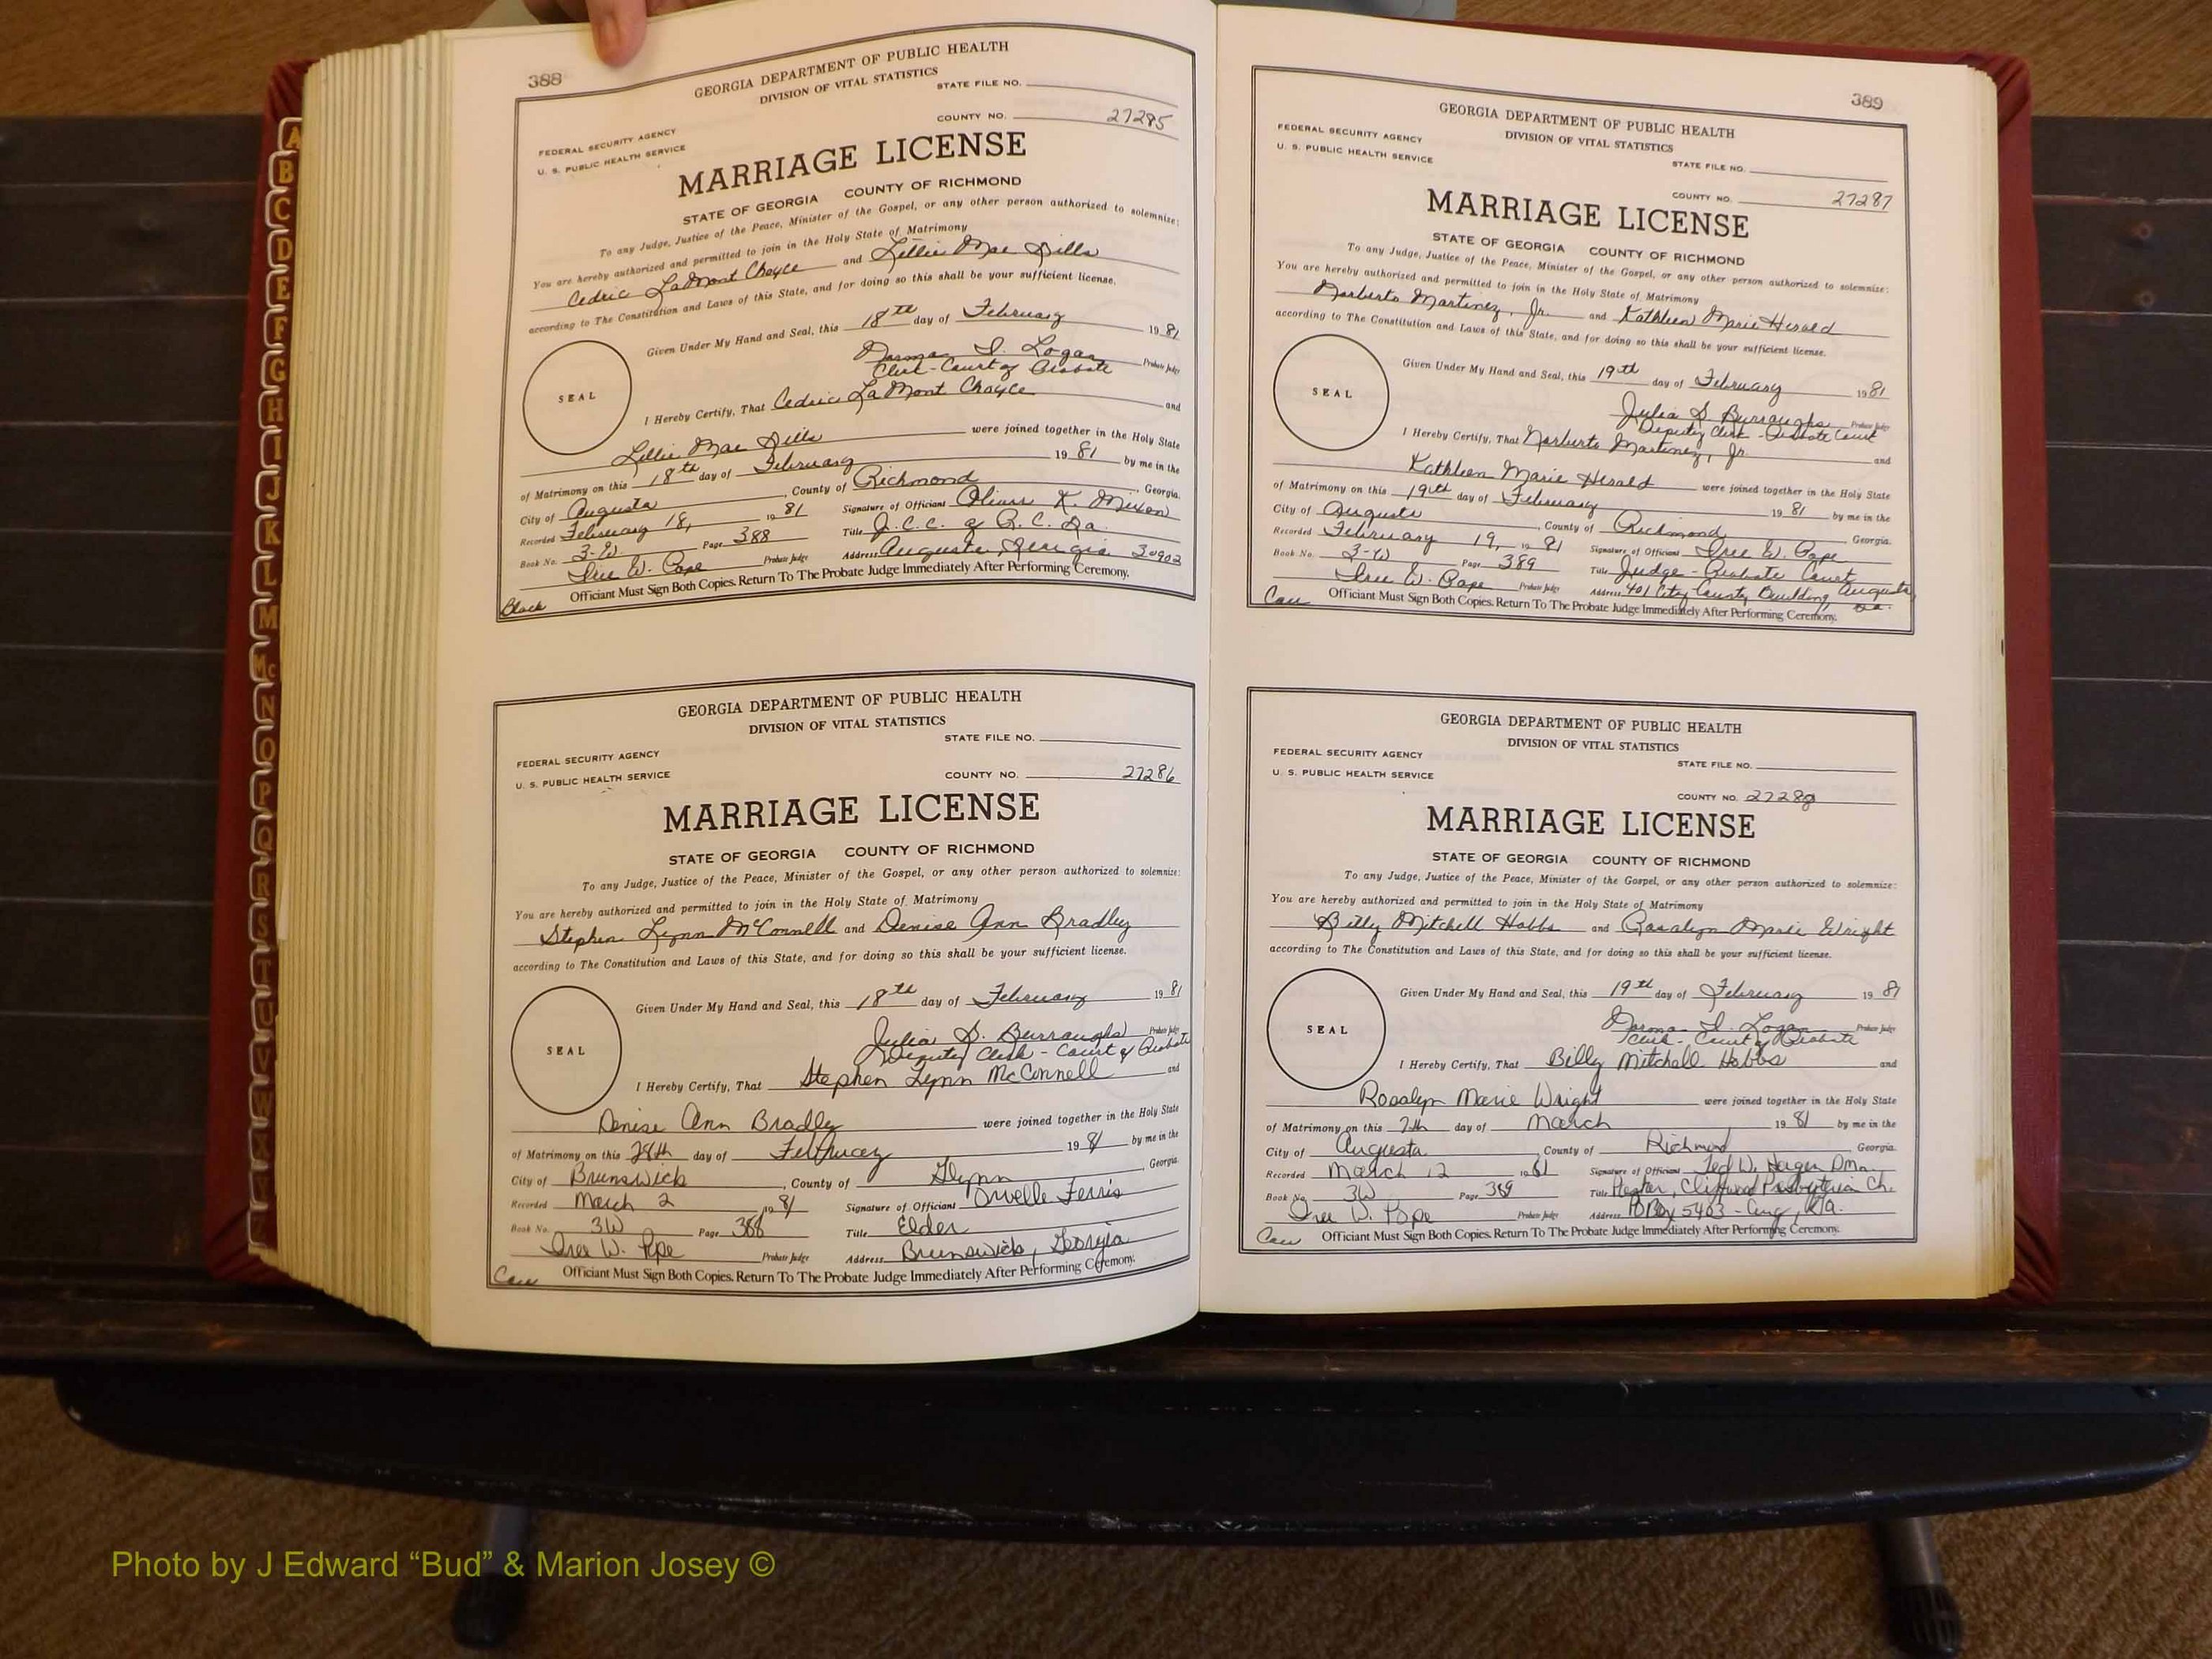 388
GEORGIA DEPARTMENT OF PUBLIC HEALTH
DIVISION OF VITAL STATISTICS
STATE FILE NO.
FEDERAL SECURITY AGENCY
U. S. PUBLIC HEALTH SERVICE
COUNTY NO. 27285
MARRIAGE LICENSE
STATE OF GEORGIA COUNTY OF RICHMOND
To any Judge, Justice of the Peace, Minister of the Gospel, or any other person authorized to solemnize:
You are hereby authorized and permitted to join in the Holy State of Matrimony
Cedric LaMont Chayce and Lillie Mae Sills
according to The Constitution and Laws of this State, and for doing so this shall be your sufficient license.
Given Under My Hand and Seal, this 18th day of February 1981
Norma I. Logan Probate Judge
Clerk - Court of Probate
SEAL
I Hereby Certify, That Cedric LaMont Chayce and
Lillie Mae Sills were joined together in the Holy State
of Matrimony on this 18th day of February 1981 by me in the
City of Augusta, County of Richmond, Georgia.
Recorded February 18, 1981 Signature of Officiant Oliver K. Mixon
Book No. 3-W Page 388 Title J.C.C. of R.C. Ga.
Iree W. Pope Probate Judge Address Augusta, Georgia 30902
Black Officiant Must Sign Both Copies. Return To The Probate Judge Immediately After Performing Ceremony.
GEORGIA DEPARTMENT OF PUBLIC HEALTH
DIVISION OF VITAL STATISTICS
STATE FILE NO.
FEDERAL SECURITY AGENCY
U. S. PUBLIC HEALTH SERVICE
COUNTY NO. 27286
MARRIAGE LICENSE
STATE OF GEORGIA COUNTY OF RICHMOND
To any Judge, Justice of the Peace, Minister of the Gospel, or any other person authorized to solemnize:
You are hereby authorized and permitted to join in the Holy State of Matrimony
Stephen Lynn McConnell and Denise Ann Bradley
according to The Constitution and Laws of this State, and for doing so this shall be your sufficient license.
Given Under My Hand and Seal, this 18th day of February 1981
Julia S. Burroughs Probate Judge
Deputy Clerk - Court of Probate
SEAL
I Hereby Certify, That Stephen Lynn McConnell and
Denise Ann Bradley were joined together in the Holy State
of Matrimony on this 28th day of February 1981 by me in the
City of Brunswick, County of Glynn, Georgia.
Recorded March 2 1981 Signature of Officiant Orvelle Ferris
Book No. 3W Page 388 Title Elder
Iree W. Pope Probate Judge Address Brunswick, Georgia
Cau Officiant Must Sign Both Copies. Return To The Probate Judge Immediately After Performing Ceremony.
389
GEORGIA DEPARTMENT OF PUBLIC HEALTH
DIVISION OF VITAL STATISTICS
FEDERAL SECURITY AGENCY
U. S. PUBLIC HEALTH SERVICE
STATE FILE NO.
COUNTY NO. 27287
MARRIAGE LICENSE
STATE OF GEORGIA COUNTY OF RICHMOND
To any Judge, Justice of the Peace, Minister of the Gospel, or any other person authorized to solemnize:
You are hereby authorized and permitted to join in the Holy State of Matrimony
Norberto Martinez, Jr. and Kathleen Marie Herald
according to The Constitution and Laws of this State, and for doing so this shall be your sufficient license.
Given Under My Hand and Seal, this 19th day of February 1981
Julia S. Burroughs Probate Judge
Deputy Clerk - Probate Court
SEAL
I Hereby Certify, That Norberto Martinez, Jr. and
Kathleen Marie Herald were joined together in the Holy State
of Matrimony on this 19th day of February 1981 by me in the
City of Augusta, County of Richmond, Georgia.
Recorded February 19, 1981 Signature of Officiant Iree W. Pope
Book No. 3-W Page 389 Title Judge - Probate Court
Iree W. Pope Probate Judge Address 401 City County Building, Augusta, Ga.
Cau Officiant Must Sign Both Copies. Return To The Probate Judge Immediately After Performing Ceremony.
GEORGIA DEPARTMENT OF PUBLIC HEALTH
DIVISION OF VITAL STATISTICS
FEDERAL SECURITY AGENCY
U. S. PUBLIC HEALTH SERVICE
STATE FILE NO.
COUNTY NO. 27288
MARRIAGE LICENSE
STATE OF GEORGIA COUNTY OF RICHMOND
To any Judge, Justice of the Peace, Minister of the Gospel, or any other person authorized to solemnize:
You are hereby authorized and permitted to join in the Holy State of Matrimony
Billy Mitchell Hobbs and Rosalyn Marie Wright
according to The Constitution and Laws of this State, and for doing so this shall be your sufficient license.
Given Under My Hand and Seal, this 19th day of February 1981
Norma I. Logan Probate Judge
Clerk - Court of Probate
SEAL
I Hereby Certify, That Billy Mitchell Hobbs and
Rosalyn Marie Wright were joined together in the Holy State
of Matrimony on this 7th day of March 1981 by me in the
City of Augusta, County of Richmond, Georgia.
Recorded March 12 1981 Signature of Officiant Ted W. Hagen Dmn.
Book No. 3W Page 389 Title Pastor, Cliffwood Presbyterian Ch.
Iree W. Pope Probate Judge Address PO Box 5403 - Aug, Ga.
Cau Officiant Must Sign Both Copies. Return To The Probate Judge Immediately After Performing Ceremony.
A
B
C
D
E
F
G
H
I
J
K
L
M
Mc
N
O
P
Q
R
S
T
U
V
W
Photo by J Edward “Bud” & Marion Josey ©